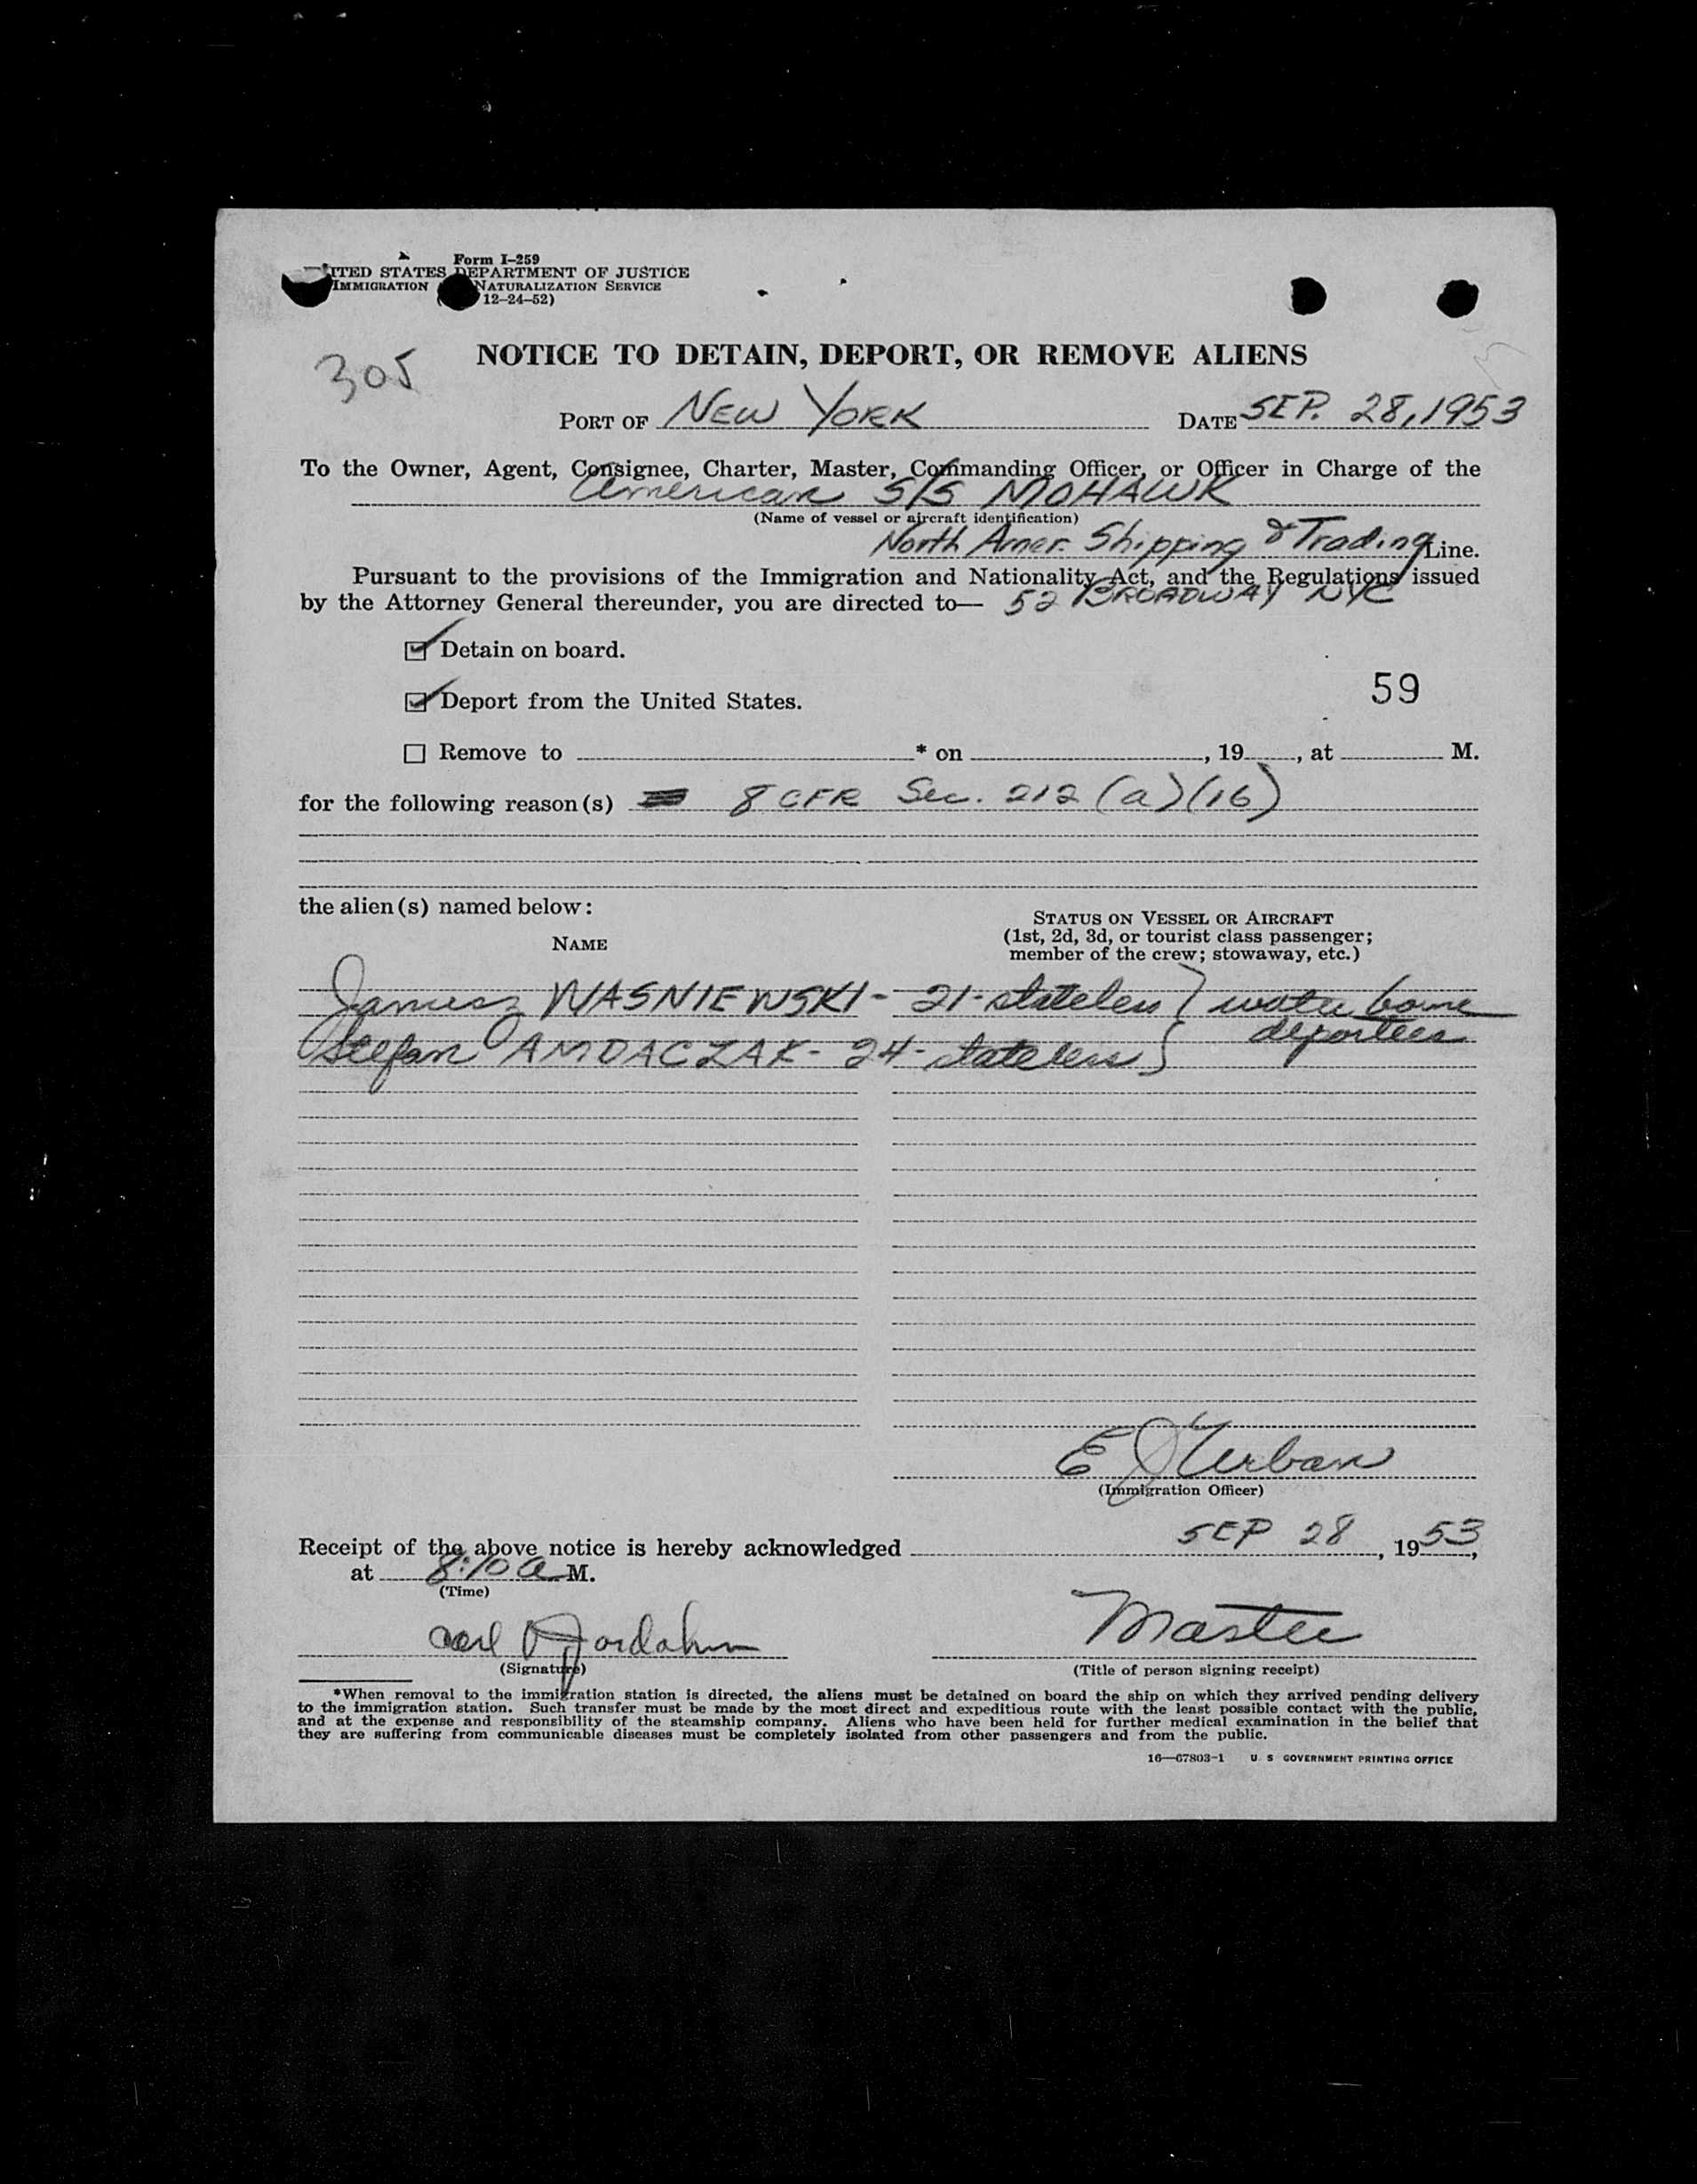 Form I-259
ITED STATES DEPARTMENT OF JUSTICE
IMMIGRATION NATURALIZATION SERVICE
12-24-52)
305
NOTICE TO DETAIN, DEPORT, OR REMOVE ALIENS
PORT OF NEW YORK DATE SEP. 28, 1953
To the Owner, Agent, Consignee, Charter, Master, Commanding Officer, or Officer in Charge of the
American S/S MOHAWK
(Name of vessel or aircraft identification)
North Amer. Shipping & Trading Line.
Pursuant to the provisions of the Immigration and Nationality Act, and the Regulations issued
by the Attorney General thereunder, you are directed to— 52 BROADWAY NYC
☑ Detain on board.
59
☑ Deport from the United States.
☐ Remove to * on , 19 , at M.
for the following reason(s) 8 CFR Sec. 212 (a)(16)
the alien(s) named below:
STATUS ON VESSEL OR AIRCRAFT
NAME
(1st, 2d, 3d, or tourist class passenger;
member of the crew; stowaway, etc.)
Janusz WASNIEWSKI - 21 - stateless } water borne
deportees
Stefan AMDACZAK - 24 - stateless
E J Urban
(Immigration Officer)
Receipt of the above notice is hereby acknowledged SEP 28, 1953,
at 8:10 a M.
(Time)
Master
(Signature) (Title of person signing receipt)
*When removal to the immigration station is directed, the aliens must be detained on board the ship on which they arrived pending delivery
to the immigration station. Such transfer must be made by the most direct and expeditious route with the least possible contact with the public,
and at the expense and responsibility of the steamship company. Aliens who have been held for further medical examination in the belief that
they are suffering from communicable diseases must be completely isolated from other passengers and from the public.
16—67803-1 U S GOVERNMENT PRINTING OFFICE